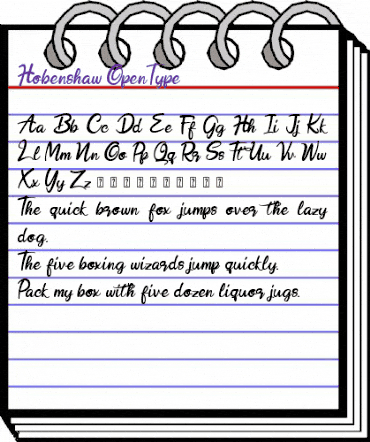 Hobenshaw OpenType
Aa Bb Cc Dd Ee Ff Gg Hh Ii Jj Kk
Ll Mm Nn Oo Pp Qq Rr Ss Tt Uu Vv Ww
Xx Yy Zz
The quick brown fox jumps over the lazy
dog.
The five boxing wizards jump quickly.
Pack my box with five dozen liquor jugs.